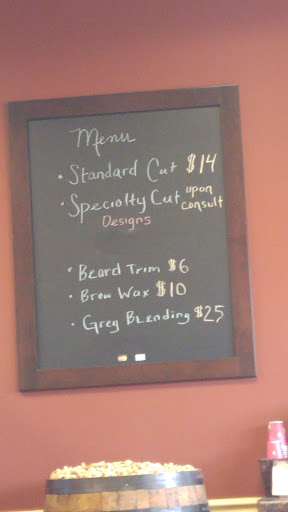 Menu
• Standard Cut $14
• Specialty Cut upon consult
Designs
• Beard Trim $6
• Brow Wax $10
• Grey Blending $25